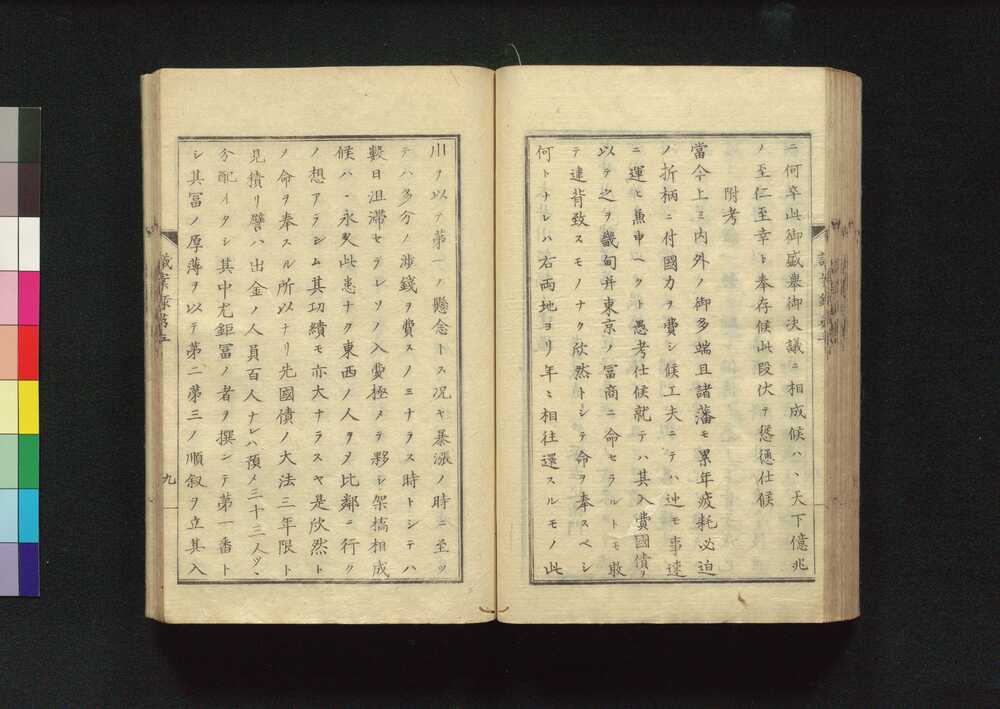 ニ何卒此御盛擧御決議ニ相成候ハヽ天下億兆
ノ至仁至幸ト奉存候此段伏テ慫慂仕候
附考
當今上ミ内外ノ御多端且諸藩モ累年疲耗必迫
ノ折柄ニ付國力ヲ費シ候工夫ニテハ迚モ事速
ニ運ヒ兼申ヘクト愚考仕候就テハ其入費國債ヲ
以テ之ヲ畿甸并東京ノ冨商ニ命セラルトモ敢
テ違背致スモノナク欣然トシテ命ヲ奉スベシ
何トナレハ右両地ヨリ年々相往還スルモノ此
川ヲ以テ第一ノ懸念トス况ヤ暴漲ノ時ニ至ツ
テハ多分ノ渉錢ヲ費スノミナラス時トシテハ
數日沮滞セラレソノ入費極メテ夥シ架搞相成
候ハヽ永久此患ナク東西ノ人ヲメ比鄰ニ行ク
ノ想アラシム其功績モ亦大ナラスヤ是欣然ト
ヲ命ヲ奉スル所以ナリ先國債ノ大法三年限ト
見積リ譬ハ出金ノ人員百人ナレハ預メ三十三人ツヽ
分配イタシ其中尤鉅冨ノ者ヲ撰シテ第一番ト
シ其冨ノ厚薄ヲ以テ第二第三ノ順叙ヲ立其入
議案録第三
九